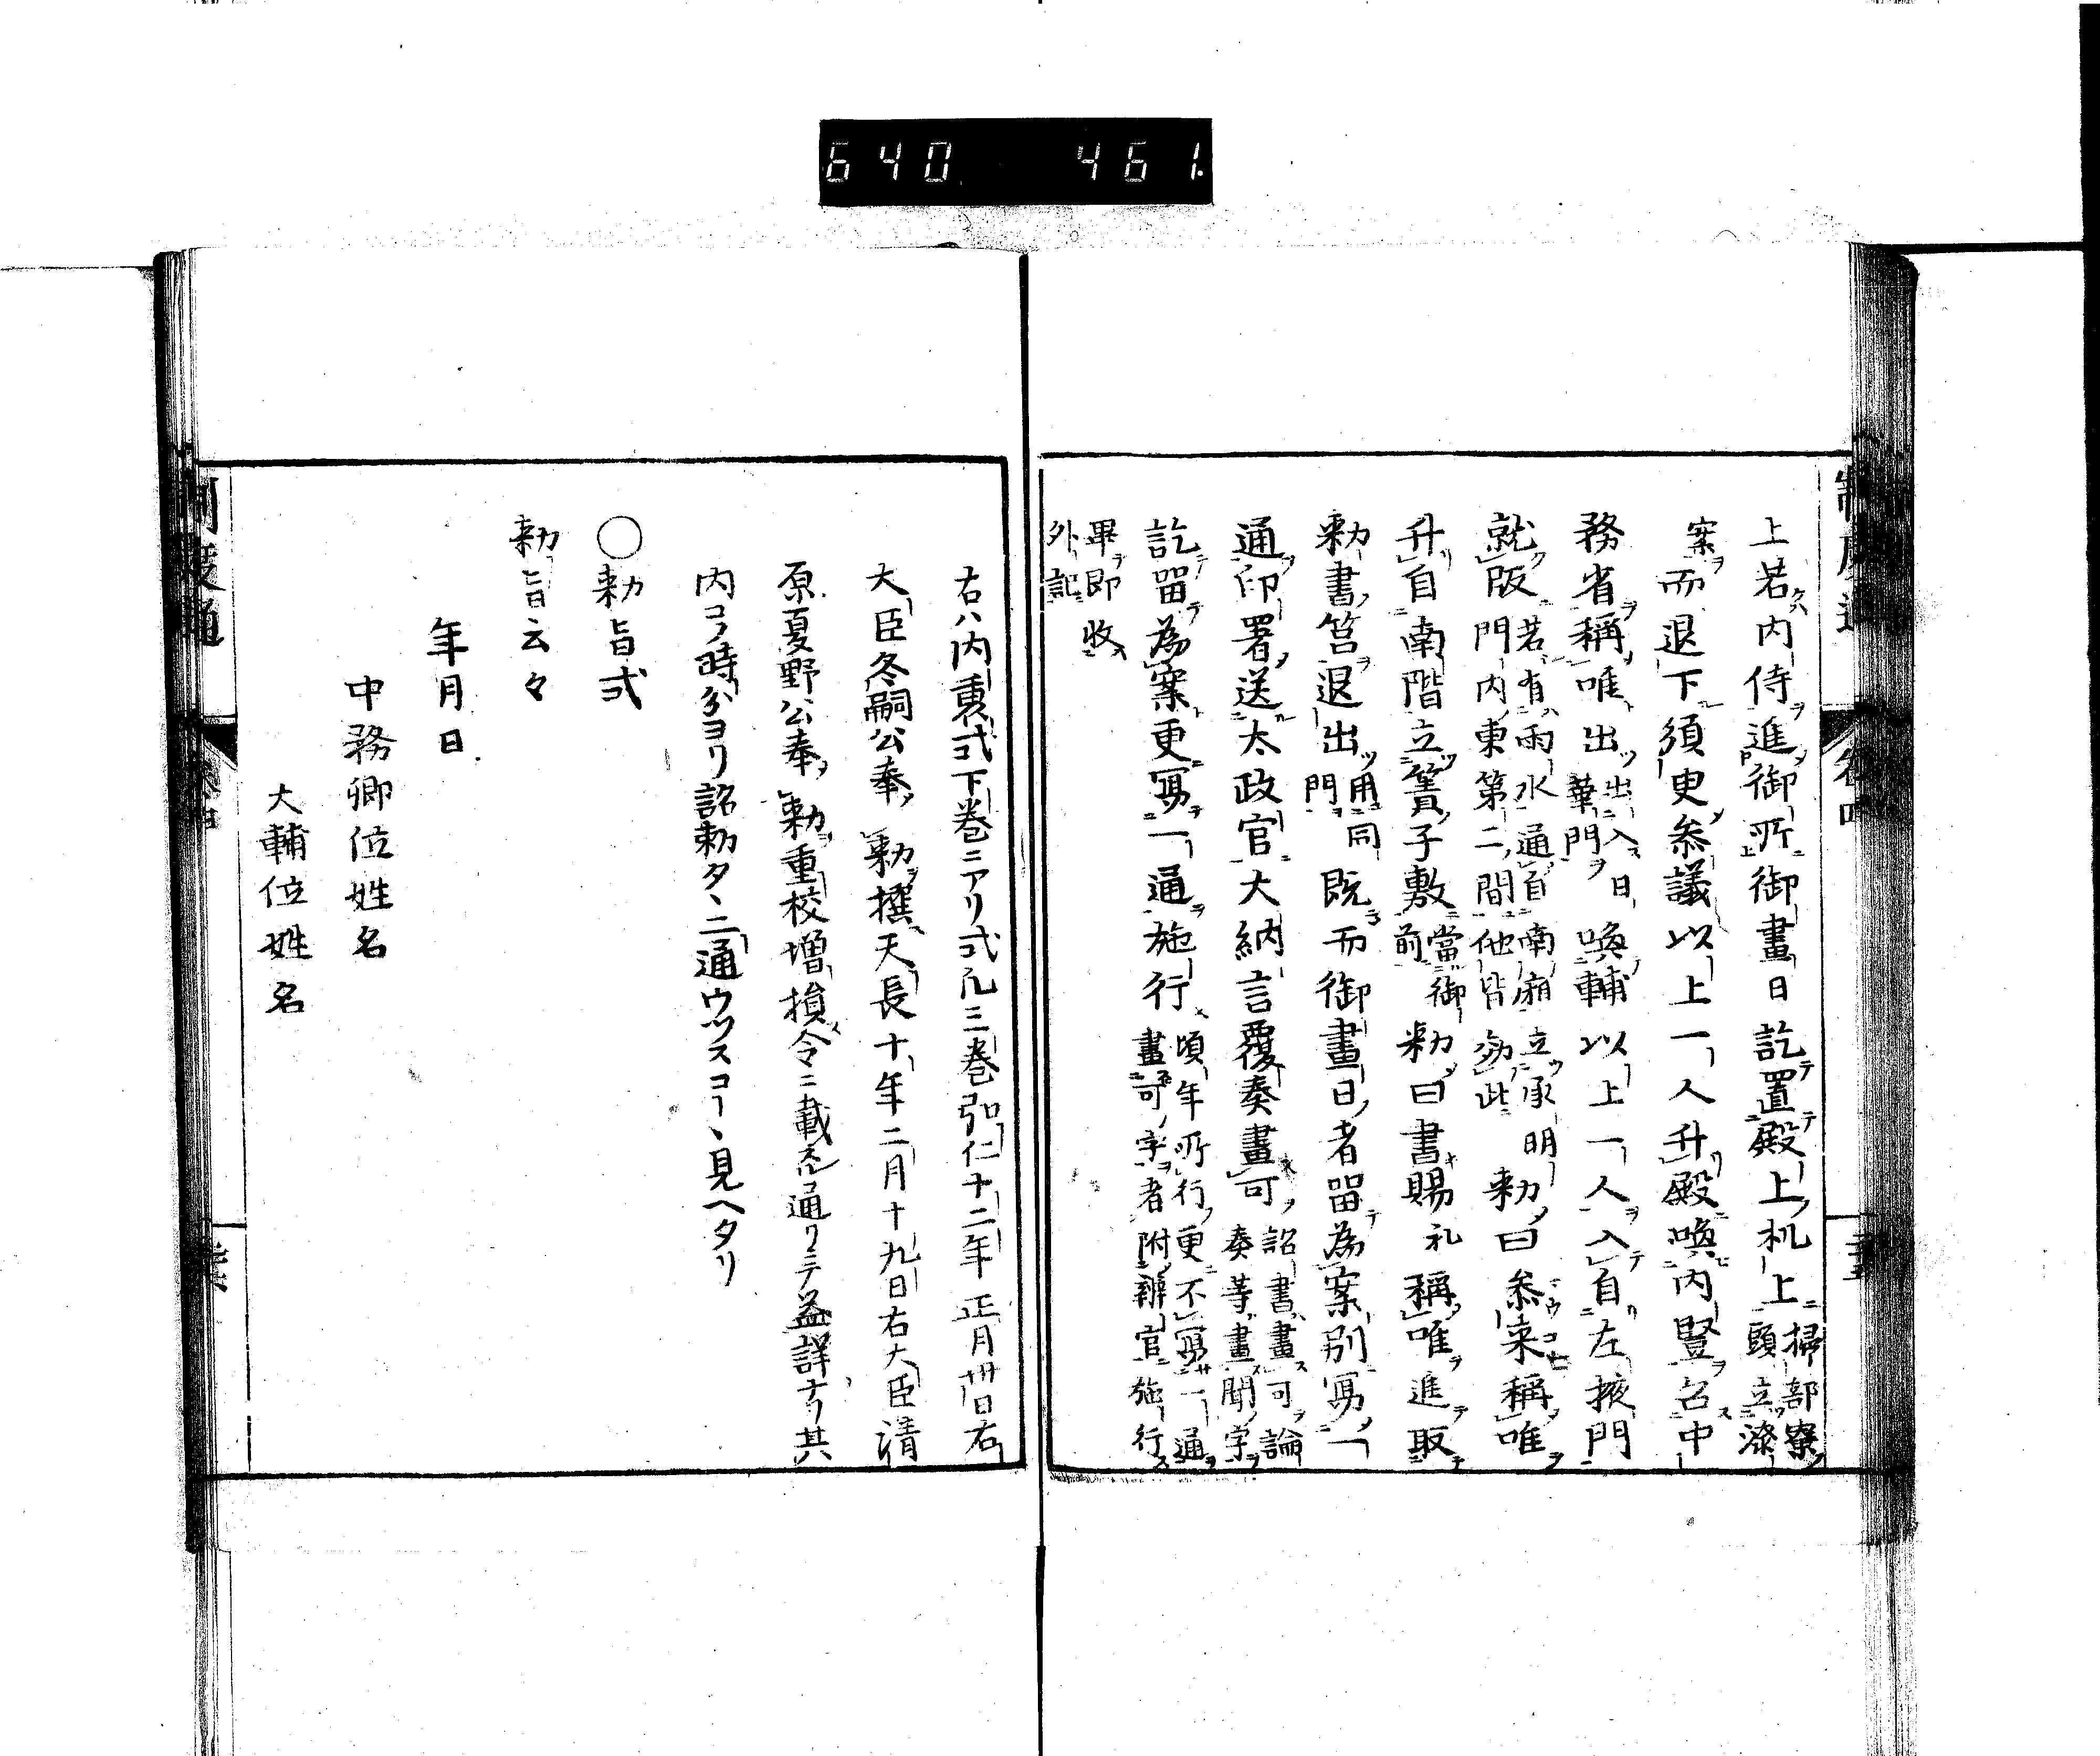 640 461.
上若内侍進御所御畫日訖置殿上机上掃部寮頭立漆
案而退下須更参議以上一人升殿喚内豎召中
務省稱唯出出入日華門喚輔以上一人入自左掖門
就版若有雨水通自南廂立承明門内東第二間他皆效此勅曰参来稱唯
升自南階立簀子敷當御前勅曰書賜礼稱唯進取
勅書筥退出用同門既而御畫日者留為案別寫一
通印署送太政官大納言覆奏畫可詔書畫可論奏等畫聞字
訖留為案更寫一通施行頃年所行更不寫一通畫可字者附辨官施行
畢即收外記
右ハ内裏式下巻ニアリ式凡三巻弘仁十二年正月卅日右
大臣冬嗣公奉勅撰天長十年二月十九日右大臣清
原夏野公奉勅重校増損令ニ載ル通リニテ益詳ナリ其
内コノ時分ヨリ詔勅タヽ二通ウツスコヽ見ヘタリ
○勅旨式
勅旨云々
年月日
中務卿位姓名
大輔位姓名